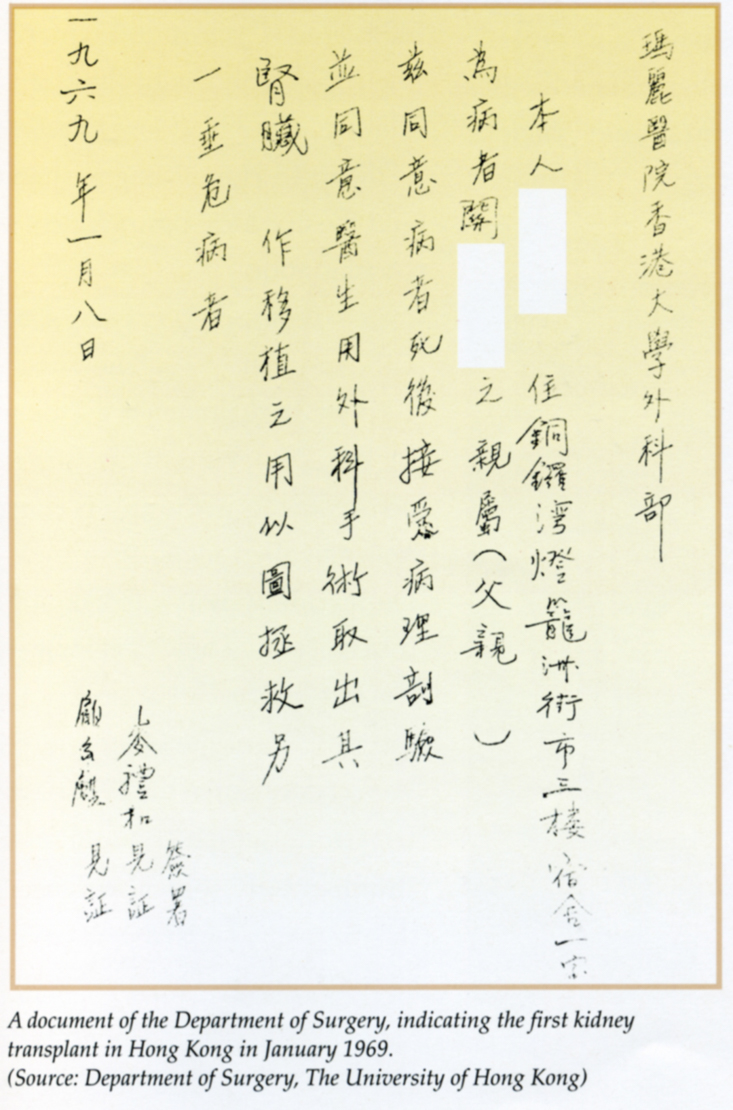 瑪麗醫院香港大學外科部
本人 住銅鑼灣燈籠洲街市三樓宿舍一宗
為病者關 之親屬(父親 )
茲同意病者死後接受病理剖驗
並同意醫生用外科手術取出其
腎臟 作移植之用以圖拯救另
一垂危病者
簽署
麥禮和見証
見証
一九六九年一月八日
A document of the Department of Surgery, indicating the first kidney
transplant in Hong Kong in January 1969.
(Source: Department of Surgery, The University of Hong Kong)